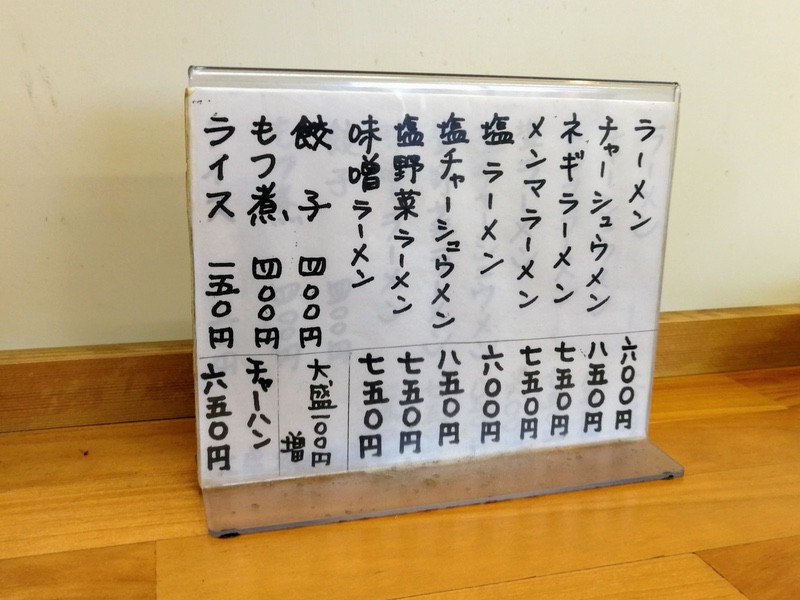 ラーメン 六〇〇円
チャーシュウメン 八五〇円
ネギラーメン 七五〇円
メンマラーメン 七五〇円
塩ラーメン 六〇〇円
塩チャーシュウメン 八五〇円
塩野菜ラーメン 七五〇円
味噌ラーメン 七五〇円
餃子 四〇〇円
もつ煮 四〇〇円
ライス 一五〇円
大盛一〇〇円
増
チャーハン
六五〇円